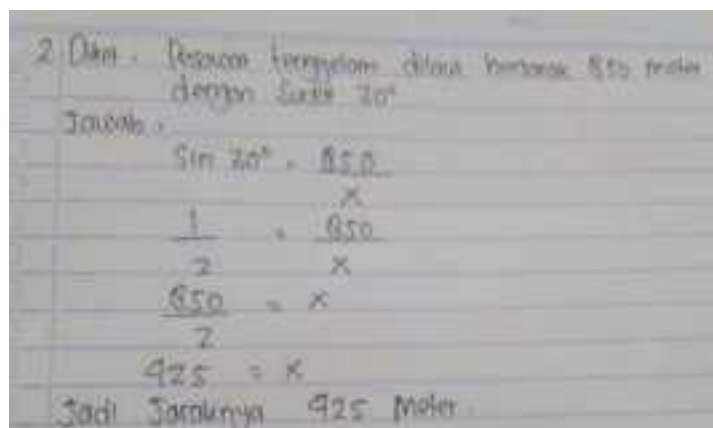 2 Diket. Pesawat tenggelam dilaut berjarak 850 meter
dengan Sudut 30°
Jawab.
Sin 30° = 850
x
1 = 850
2 x
850 = x
2
425 = x
Jadi Jaraknya 425 Meter.